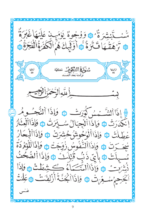 مُّسْتَبْشِرَةٌ ۝ وَوُجُوهٌ يَوْمَئِذٍ عَلَيْهَا غَبَرَةٌ ۝
تَرْهَقُهَا قَتَرَةٌ ۝ أُولَٰئِكَ هُمُ الْكَفَرَةُ الْفَجَرَةُ ۝
سُورَةُ التَّكْوِيرِ
بِسْمِ اللَّهِ الرَّحْمَٰنِ الرَّحِيمِ
إِذَا الشَّمْسُ كُوِّرَتْ ۝ وَإِذَا النُّجُومُ
انكَدَرَتْ ۝ وَإِذَا الْجِبَالُ سُيِّرَتْ ۝ وَإِذَا الْعِشَارُ
عُطِّلَتْ ۝ وَإِذَا الْوُحُوشُ حُشِرَتْ ۝ وَإِذَا الْبِحَارُ
سُجِّرَتْ ۝ وَإِذَا النُّفُوسُ زُوِّجَتْ ۝ وَإِذَا الْمَوْءُودَةُ
سُئِلَتْ ۝ بِأَيِّ ذَنبٍ قُتِلَتْ ۝ وَإِذَا الصُّحُفُ
نُشِرَتْ ۝ وَإِذَا السَّمَاءُ كُشِطَتْ ۝ وَإِذَا
الْجَحِيمُ سُعِّرَتْ ۝ وَإِذَا الْجَنَّةُ أُزْلِفَتْ ۝ عَلِمَتْ